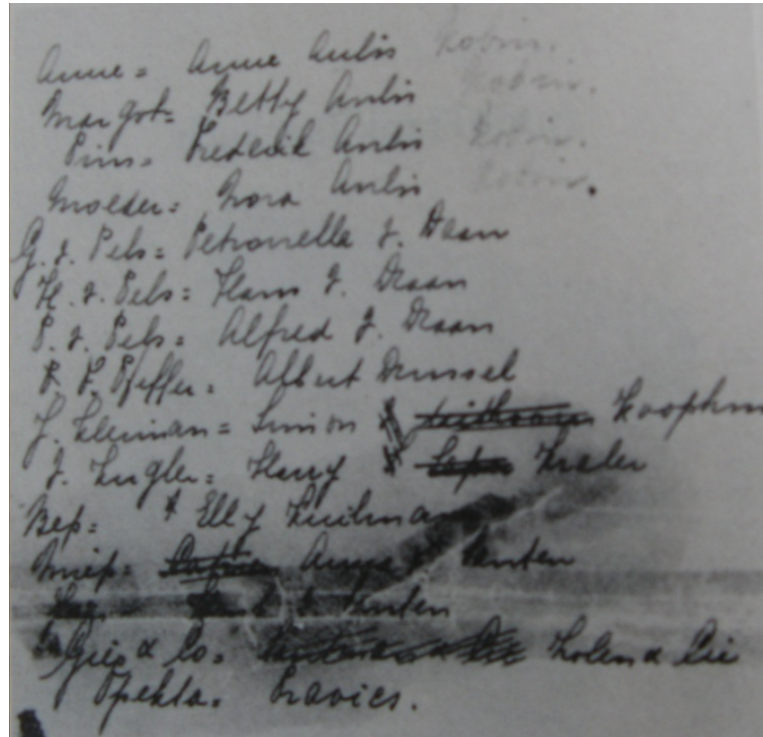 Anne = Anne Aulis Robin.
Margot = Betty Aulis Robin.
Pim = Frederik Aulis Robin.
Moeder = Nora Aulis Robin.
G. v. Pels = Petronella v. Daan
H. v. Pels = Hans v. Daan
P. v. Pels = Alfred v. Daan
F. Pfeffer = Albert Dussel
J. Kleiman = Simon Koophuis
V. Kugler = Harry Kraler
Bep = Elly Kuilmans
Miep = Anne v. Santen
Jan v. Santen
Gies & Co = Kolen & Cie
Opekta = Travies.